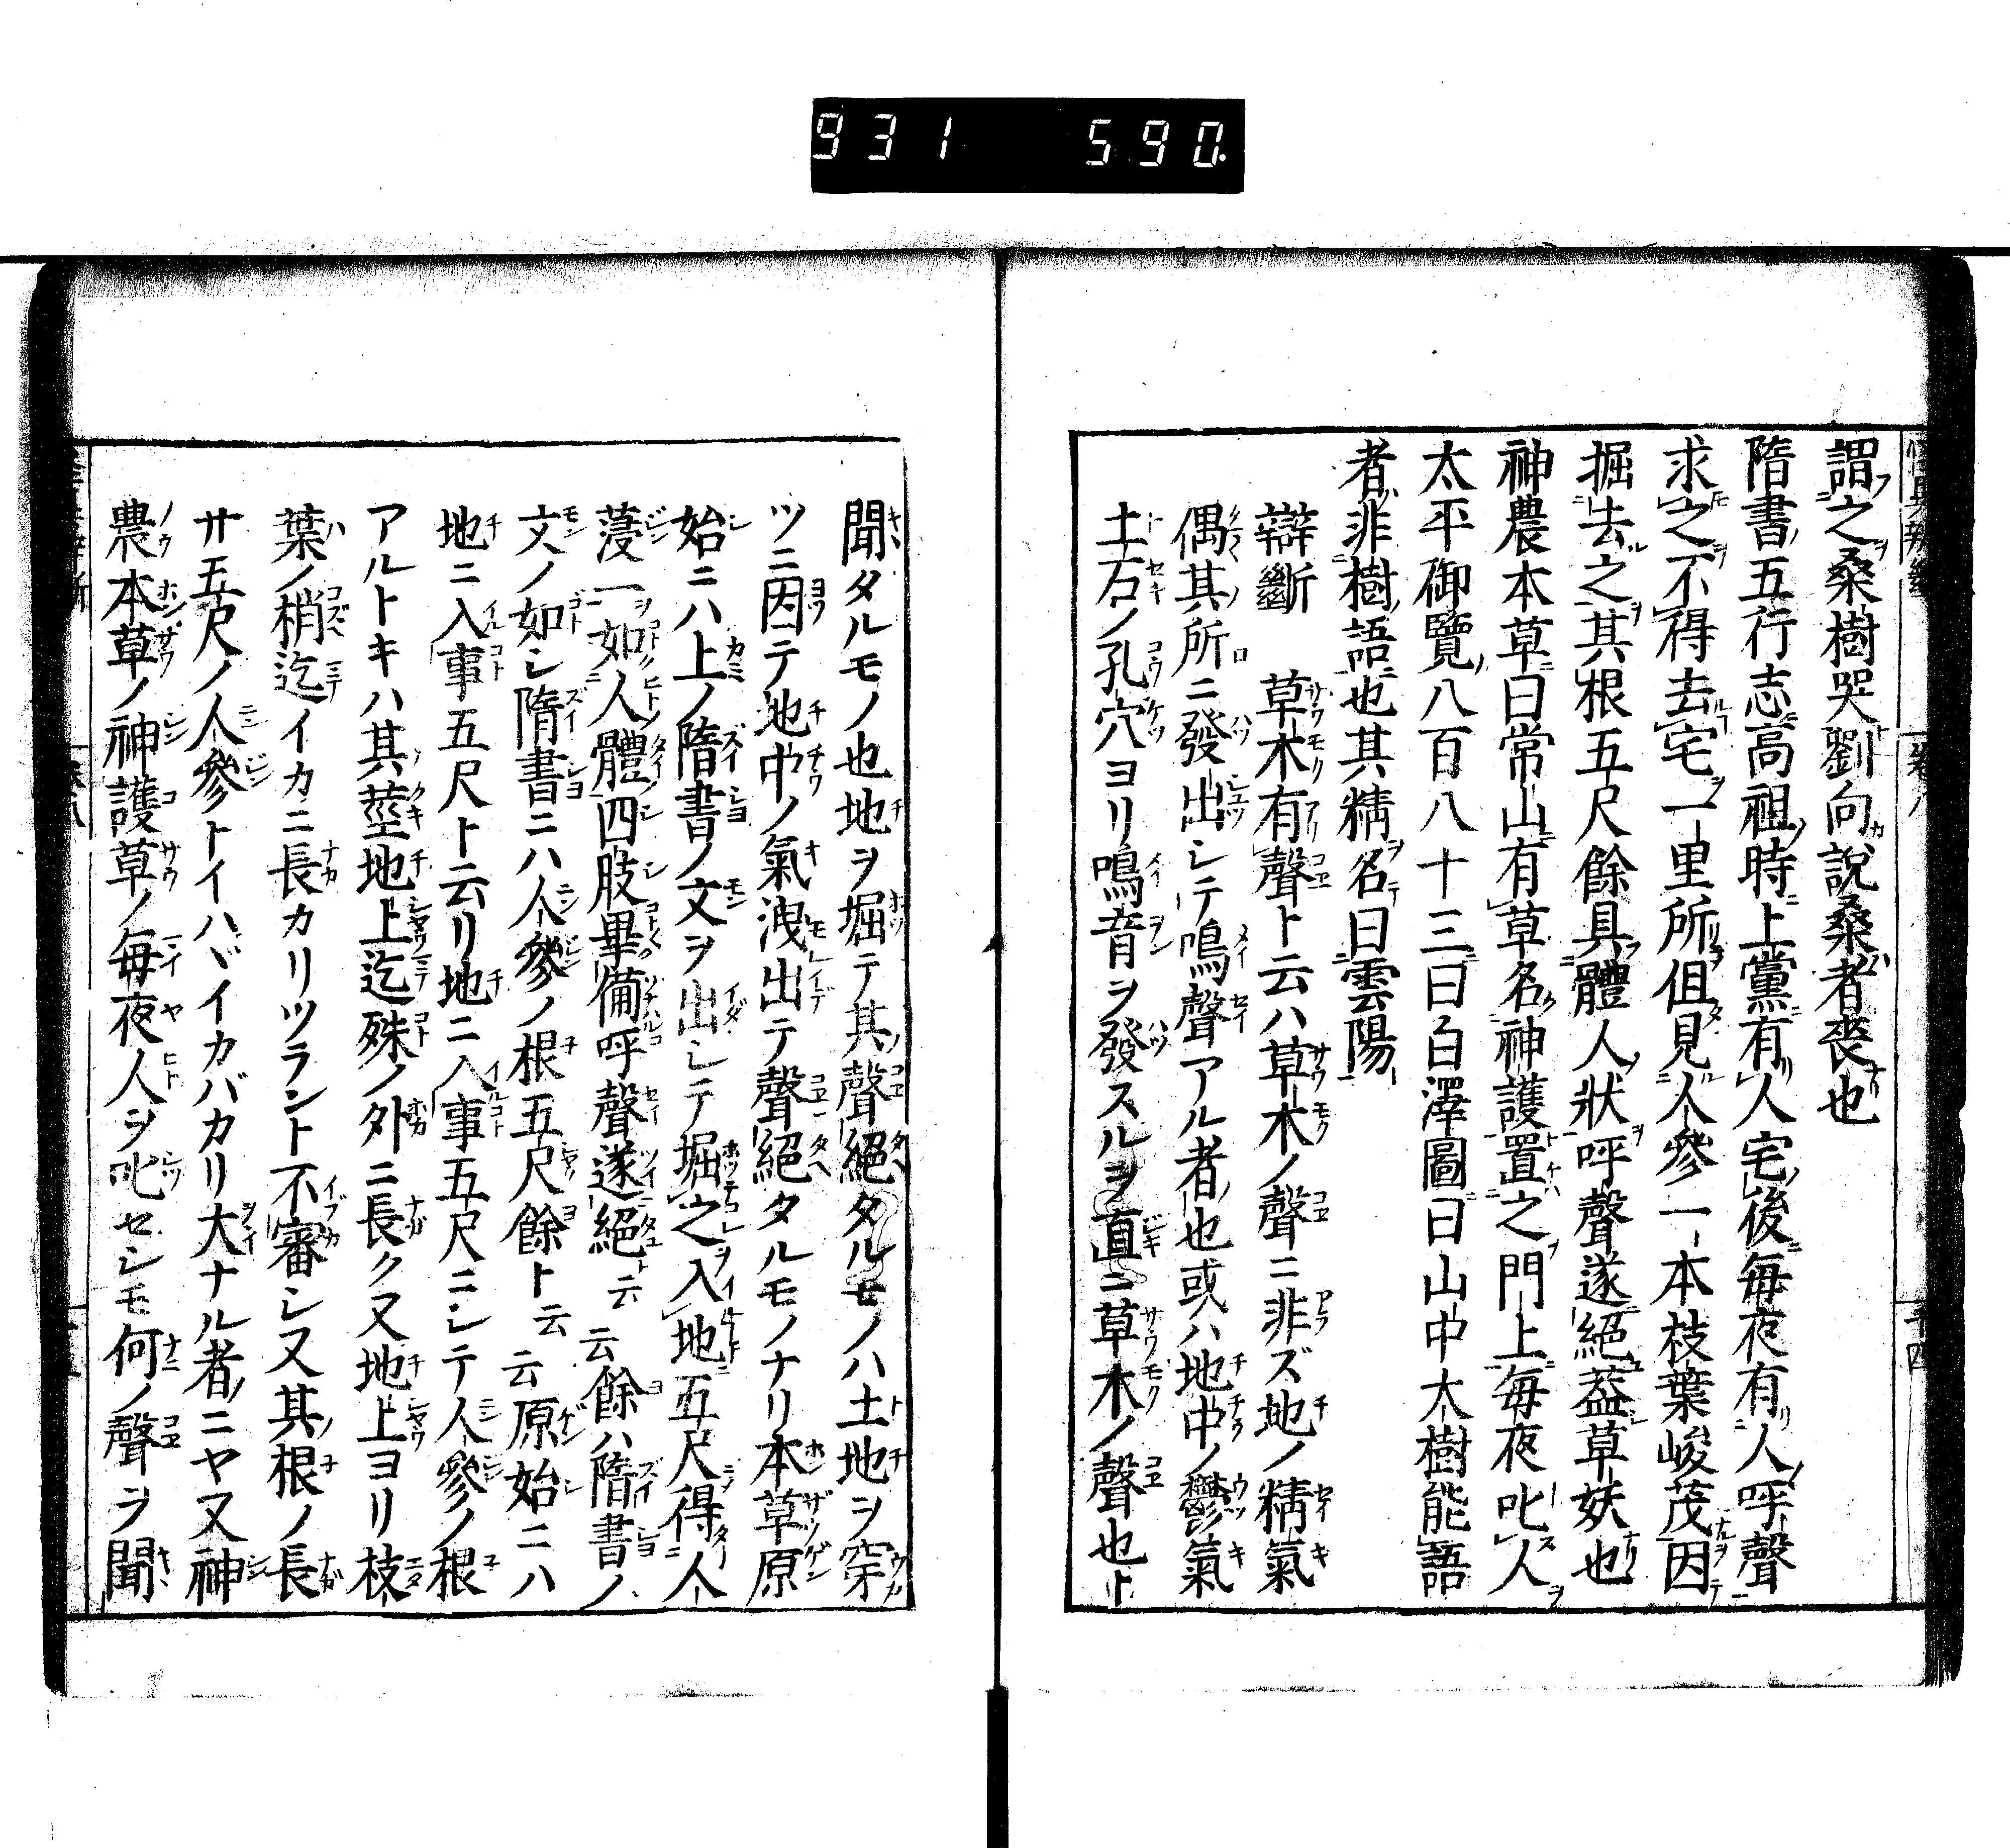 931 590
謂之桑樹哭劉向説桑者喪也
隋書五行志高祖時上黨有人宅後毎夜有人呼聲
求之不得去宅一里所但見人參一本枝葉峻茂因
掘去之其根五尺餘具體人狀呼聲遂絕蓋草妖也
神農本草曰常山有草名神護置之門上毎夜叱人
太平御覽八百八十三曰白澤圖曰山中大樹能語
者非樹語也其精名曰雲陽
辯斷 草木有聲ト云ハ草木ノ聲ニ非ズ地ノ精氣
偶其所ニ發出シテ鳴聲アル者也或ハ地中ノ鬱氣
土石ノ孔穴ヨリ鳴音ヲ發スルヲ直ニ草木ノ聲也ト
聞タルモノ也地ヲ堀テ其聲絕タルモノハ土地ヲ穿
ツニ因テ地中ノ氣洩出テ聲絕タルモノナリ本草原
始ニハ上ノ隋書ノ文ヲ出シテ堀之入地五尺得人
葠一如人體四肢畢備呼聲遂絕ト云云餘ハ隋書ノ
文ノ如シ隋書ニハ人參ノ根五尺餘ト云云原始ニハ
地ニ入事五尺ト云リ地ニ入事五尺ニシテ人參ノ根
アルトキハ其莖地上迄殊ノ外ニ長ク又地上ヨリ枝
葉ノ梢迄イカニ長カリツラント不審シ又其根ノ長
サ五尺ノ人參トイハヾイカバカリ大ナル者ニヤ又神
農本草ノ神護草ノ毎夜人ヲ叱セシモ何ノ聲ヲ聞